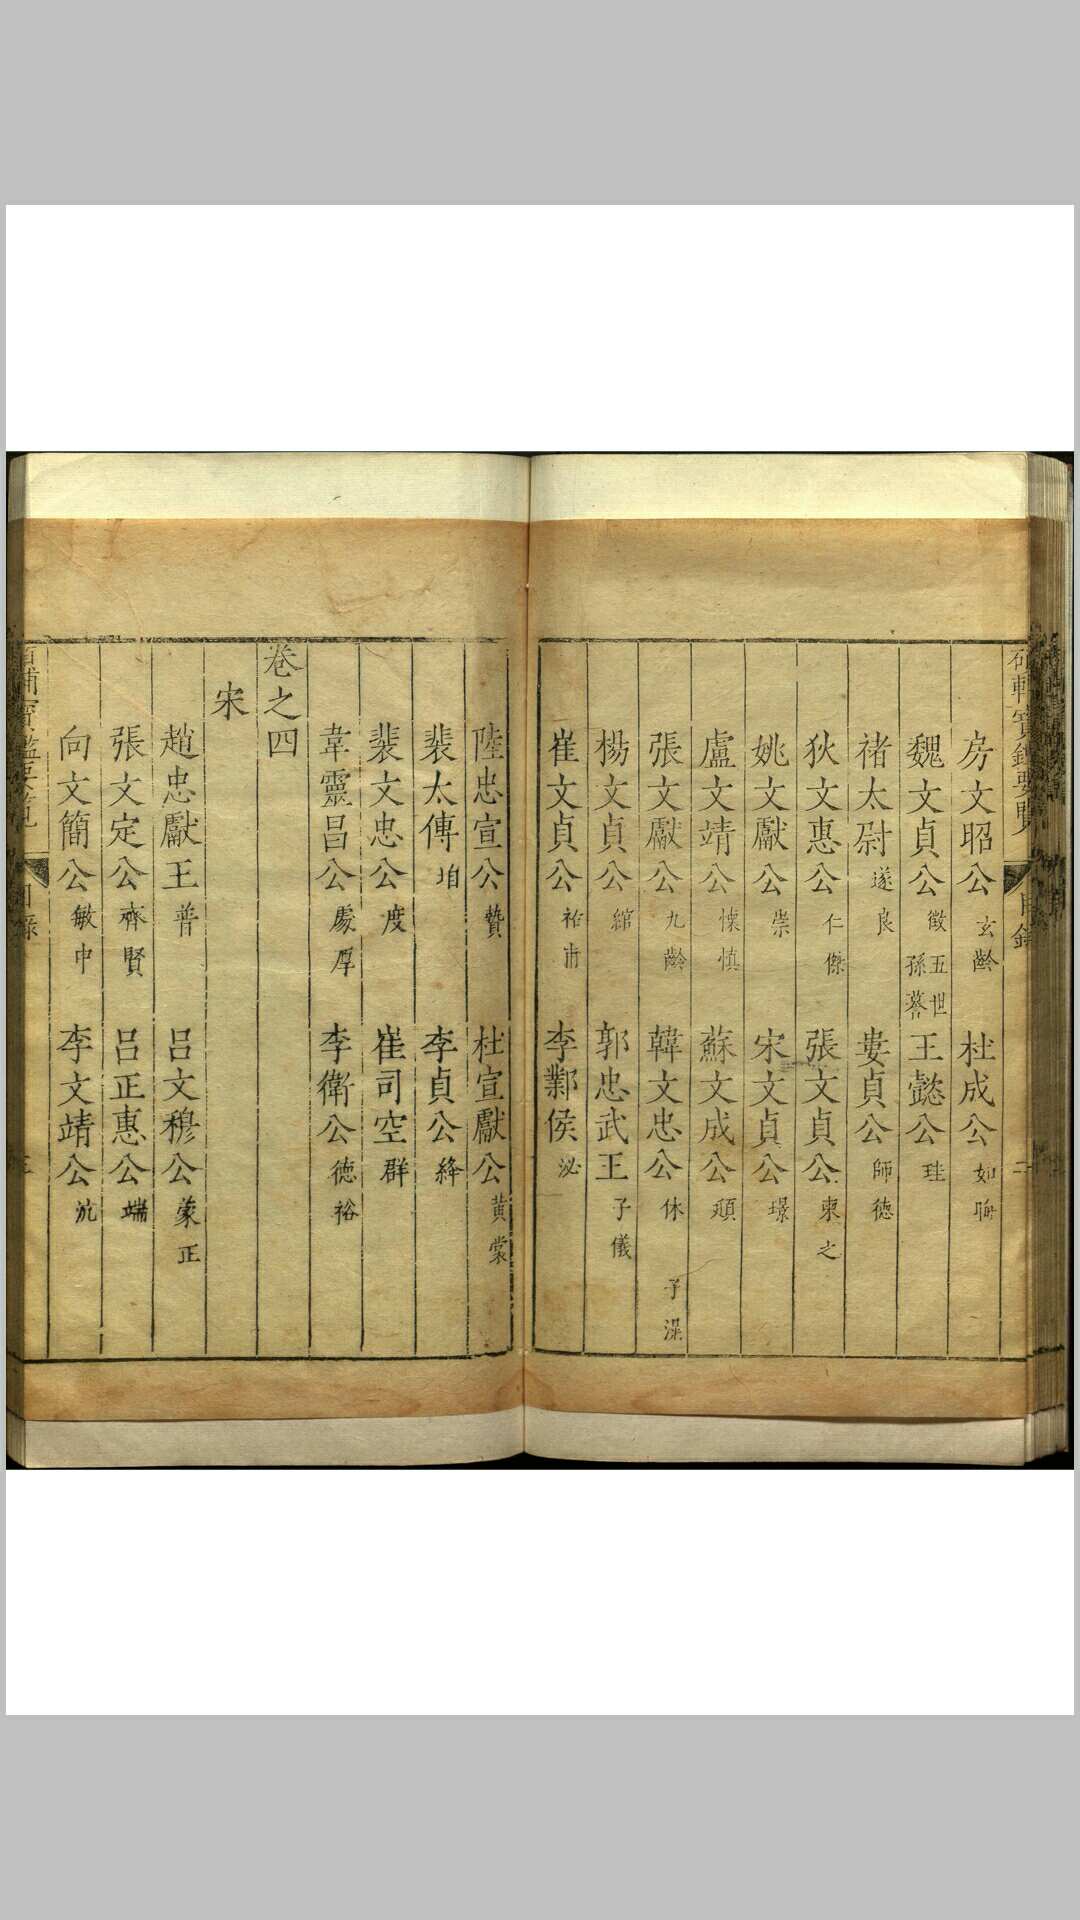 房文昭公玄齡 杜成公如晦
魏文貞公徵五世孫謩 王懿公珪
禇太尉遂良 婁貞公師德
狄文惠公仁傑 張文貞公柬之
姚文獻公崇 宋文貞公璟
盧文靖公懷慎 蘇文成公頲
張文獻公九齡 韓文忠公休子滉
楊文貞公綰 郭忠武王子儀
崔文貞公祐甫 李鄴侯泌
陸忠宣公贄 杜宣獻公黃裳
裴太傳垍 李貞公絳
裴文忠公度 崔司空群
韋靈昌公處厚 李衛公德裕
卷之四
宋
趙忠獻王普 呂文穆公蒙正
張文定公齊賢 呂正惠公端
向文簡公敏中 李文靖公沆
目錄